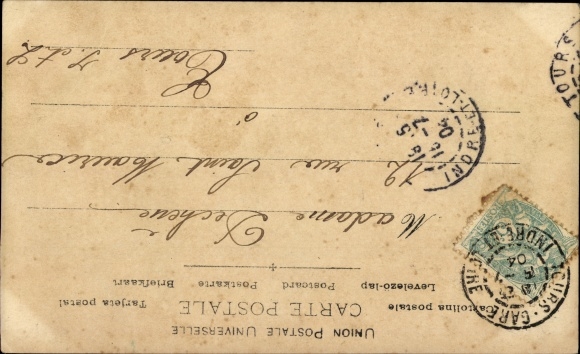 UNION POSTALE UNIVERSELLE
CARTE POSTALE
Cartolina postale Tarjeta postal
Levelező-lap Postcard Postkarte Briefkaart
Madame
12 rue Saint Maurice
à
Tours I et L
TOURS-GARE
INDRE-ET-LOIRE
04
INDRE-ET-LOIRE
04
TOURS